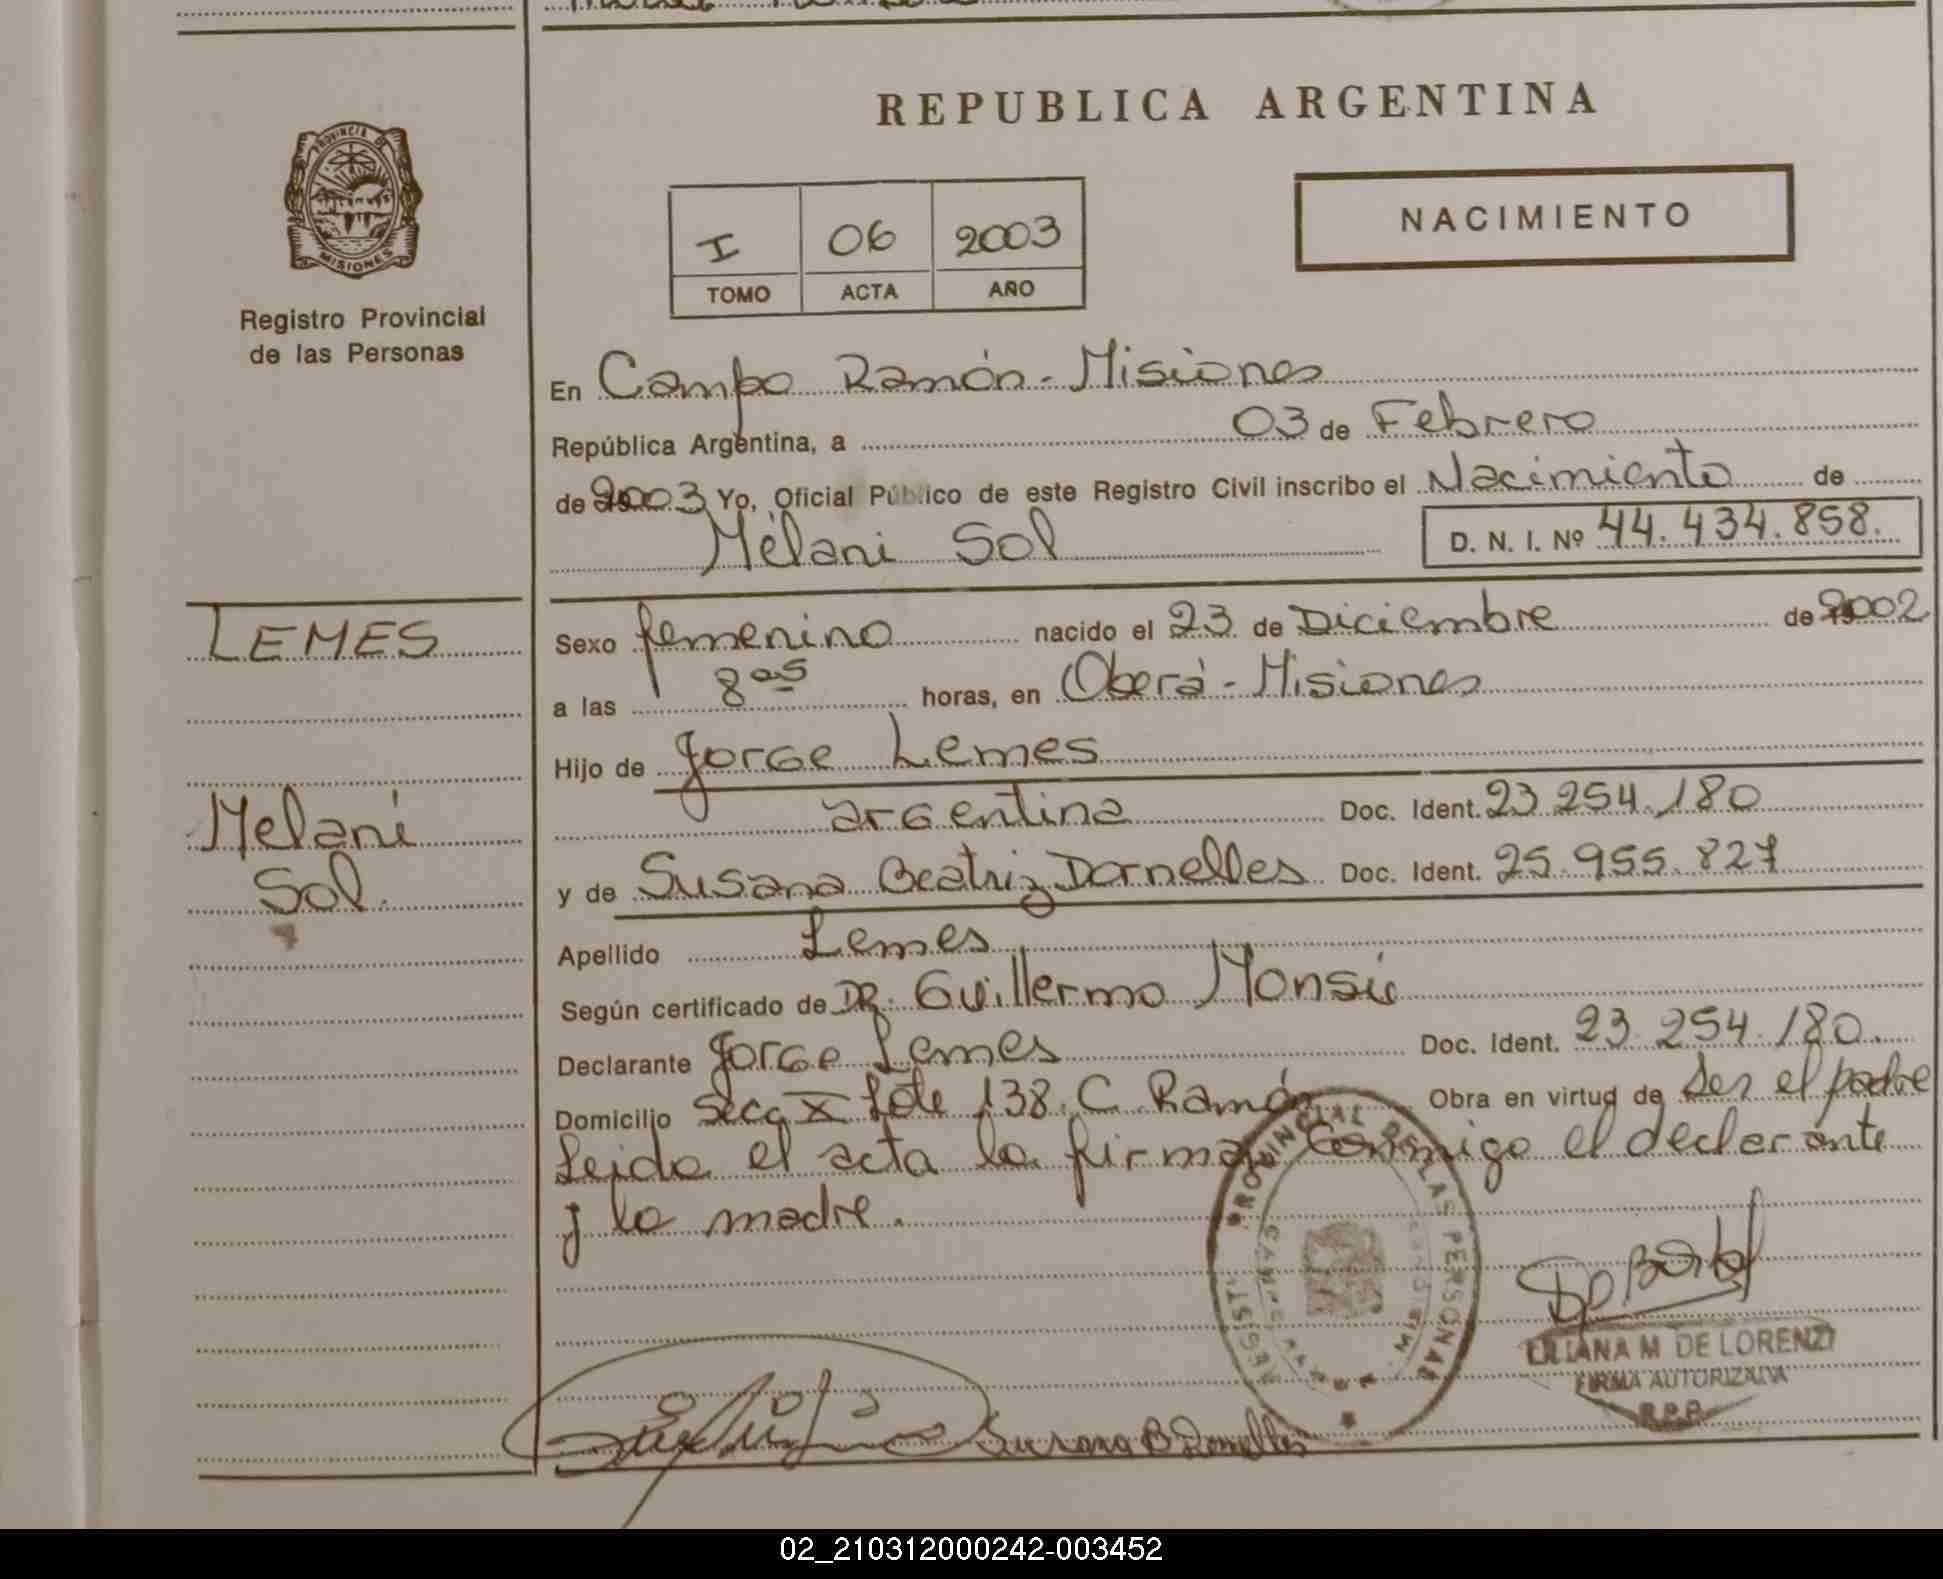 REPUBLICA ARGENTINA
PROVINCIA DE
MISIONES
Registro Provincial
de las Personas
I 06 2003
TOMO ACTA AÑO
NACIMIENTO
En Campo Ramón - Misiones
República Argentina, a 03 de Febrero
de 2003 Yo, Oficial Público de este Registro Civil inscribo el Nacimiento de
Melani Sol D. N. I. Nº 44.434.858.
LEMES
Melani
Sol.
Sexo femenino nacido el 23 de Diciembre de 2002
a las 8 as horas, en Oberá - Misiones
Hijo de Jorge Lemes
argentina Doc. Ident. 23.254.180
y de Susana Beatriz Dornelles Doc. Ident. 25.955.827
Apellido Lemes
Según certificado de DR. Guillermo Monsú
Declarante Jorge Lemes Doc. Ident. 23.254.180.
Domicilio Secc. X Lote 138. C. Ramón Obra en virtud de ser el padre
Leida el acta la firma conmigo el declarante
y la madre.
PROVINCIAL DE LAS PERSONAS
LILIANA M DE LORENZI
FIRMA AUTORIZADA
R.P.P.
Susana B Dornelles
02_210312000242-003452